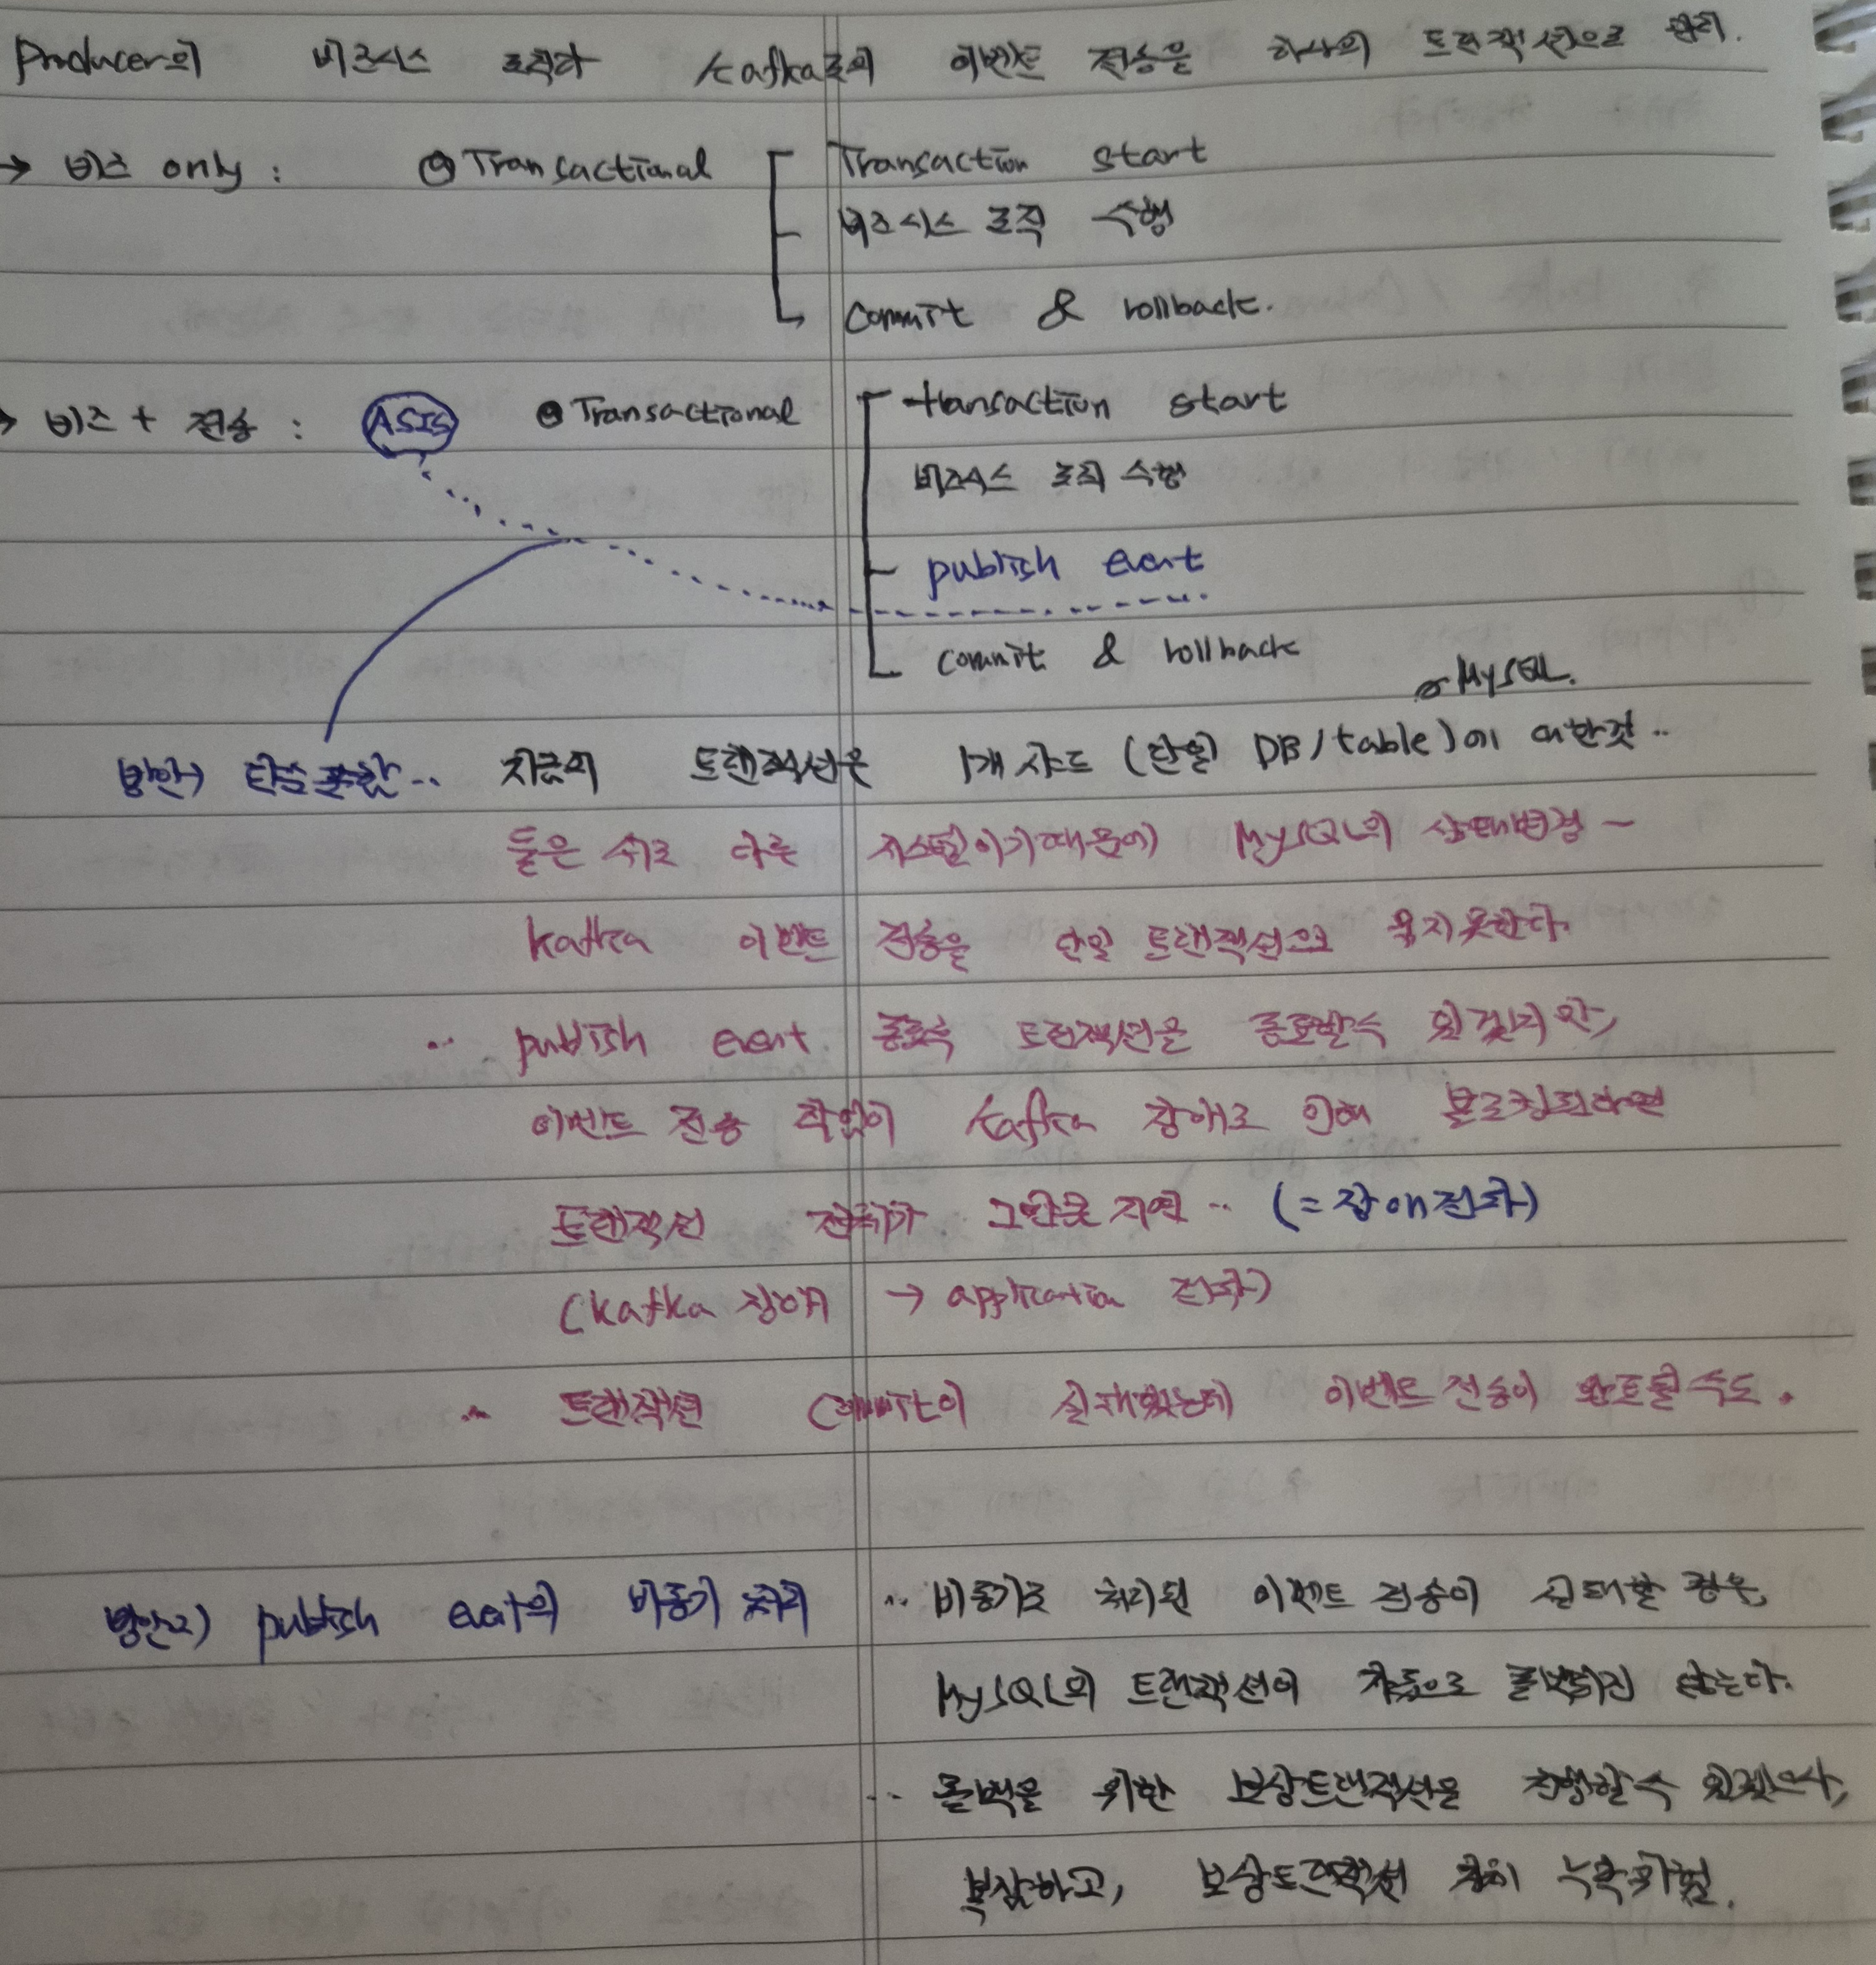 Producer의 비즈니스 로직과 kafka로의 이벤트 전송을 하나의 트랜잭션으로 처리.
→ 비즈 only : @Transactional Transaction start
비즈니스 로직 수행
commit & rollback.
→ 비즈 + 전송 : ASIS @Transactional transaction start
비즈니스 로직 수행
publish event
commit & rollback
MySQL.
방안1) 단순 포함.. 지금의 트랜잭션은 1개 샤드 (단일 DB/table)에 대한것..
둘은 서로 다른 시스템이기때문에 MySQL의 상태변경 -
kafka 이벤트 전송을 단일 트랜잭션으로 묶지못한다.
.. publish event 종료후 트랜잭션을 종료할수 있겠지만,
이벤트 전송 작업이 kafka 장애로 인해 블로킹된다면
트랜잭션 전체가 그만큼 지연 .. (= 장애전파)
(kafka 장애 → application 전파)
.. 트랜잭션 commit이 실패했는데 이벤트 전송이 완료될 수도.
방안2) publish event의 비동기 처리 .. 비동기로 처리된 이벤트 전송이 실패할 경우,
MySQL의 트랜잭션이 자동으로 롤백되진 않는다.
.. 롤백을 위한 보상트랜잭션을 수행할수 있겠으나,
복잡하고, 보상트랜잭션 누락위험.